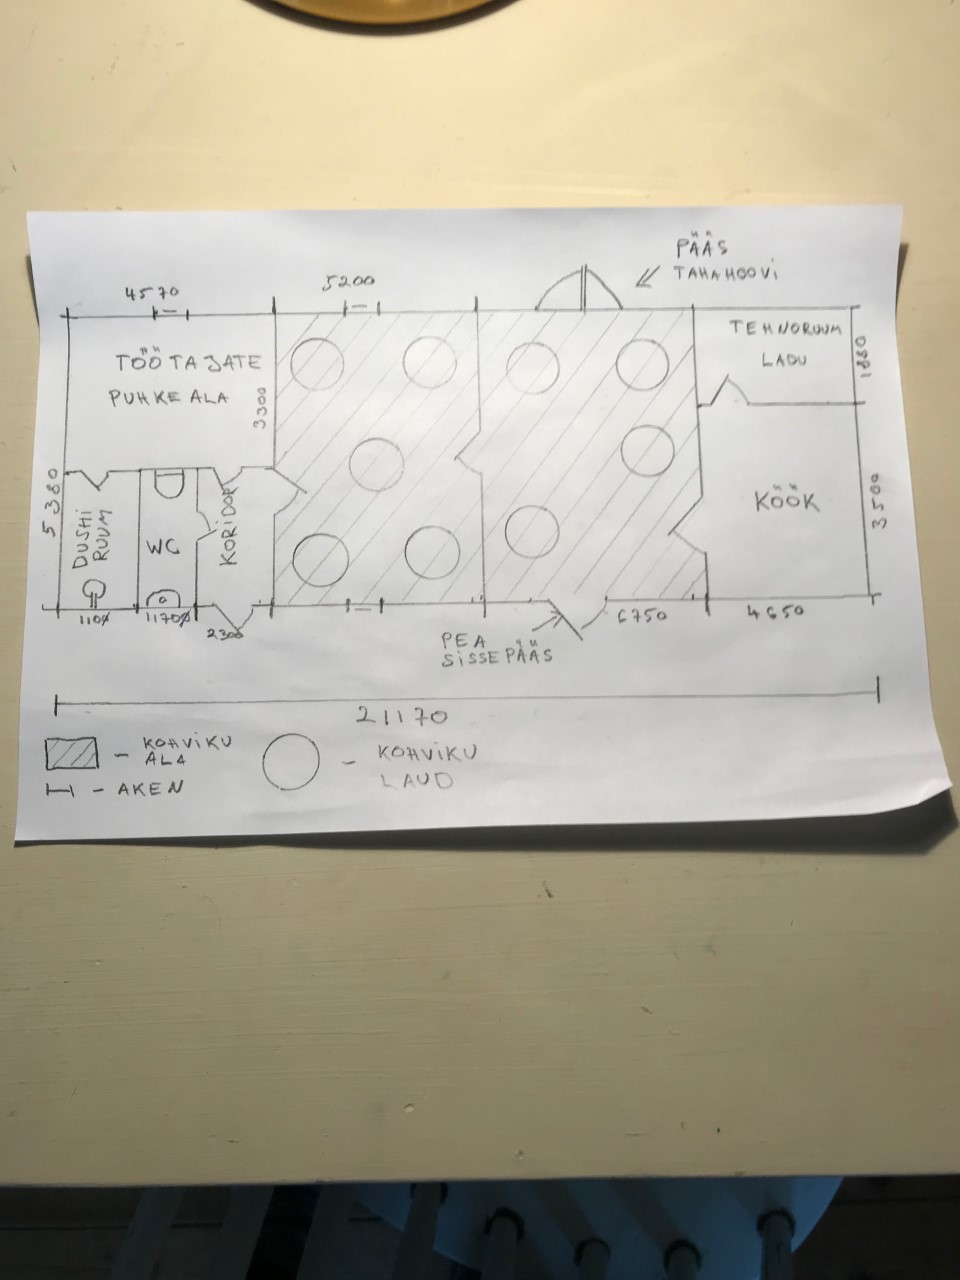 PÄÄS
TAHAHOOVI
4570
5200
TÖÖTAJATE
PUHKEALA
3300
TEHNORUUM
LADU
1880
5380
DUSHI
RUUM
WC
KORIDOR
KÖÖK
3500
1100
1170
2300
PEA
SISSEPÄÄS
6750
4650
21170
- KOHVIKU
ALA
- KOHVIKU
LAUD
- AKEN